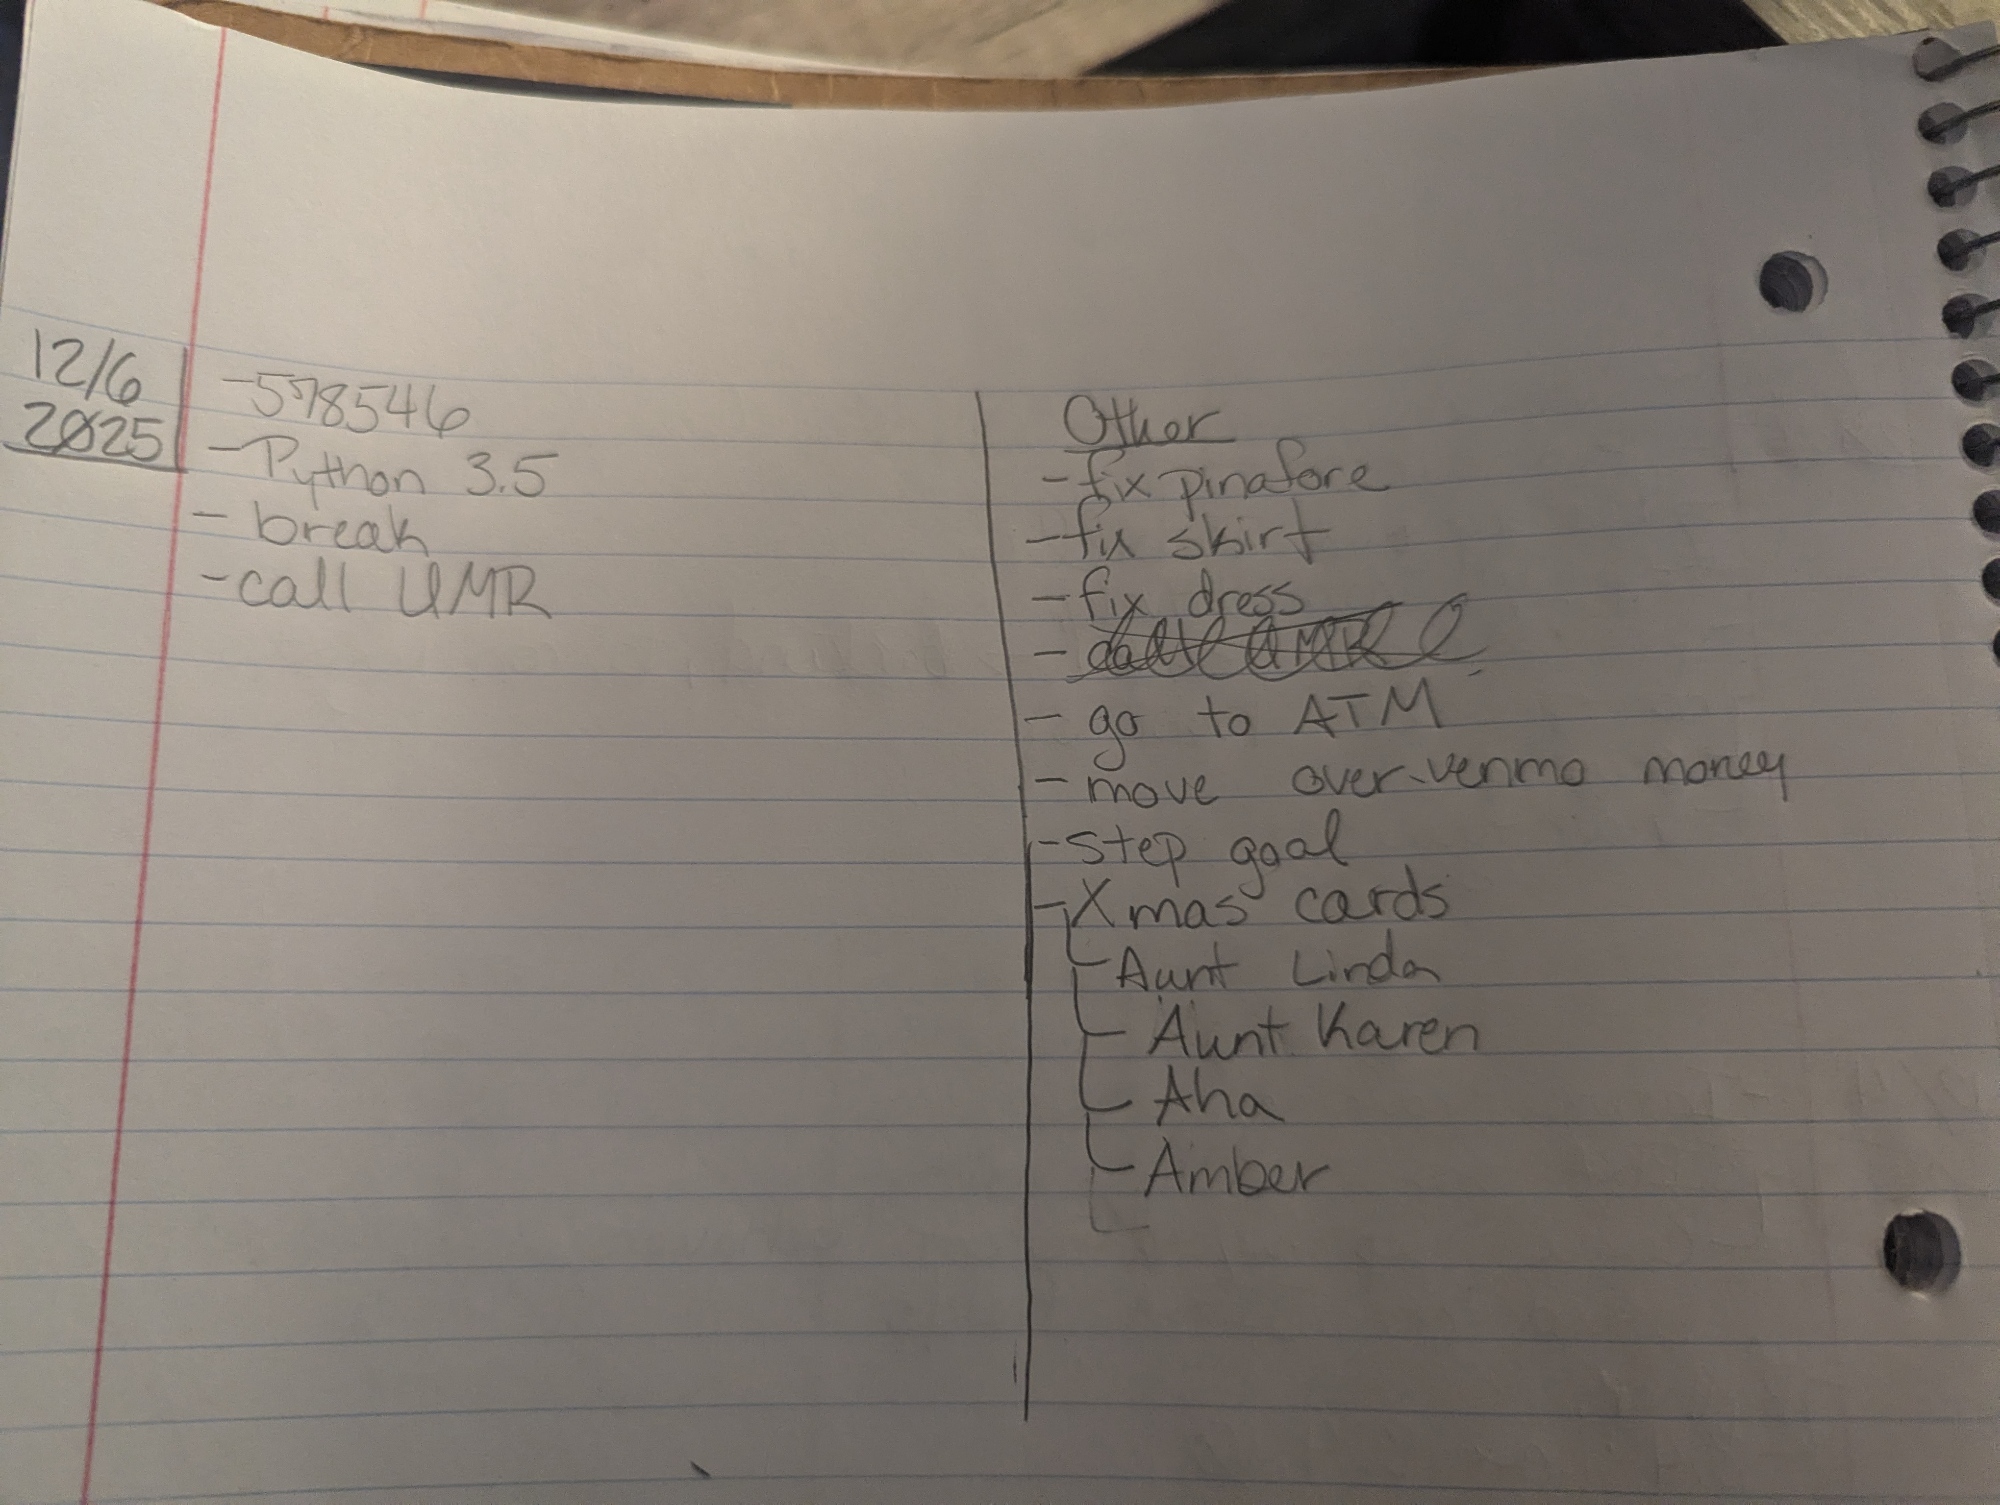 12/6
2025
- 578546
- Python 3.5
- break
- call UMR
Other
- fix pinafore
- fix skirt
- fix dress
-
- go to ATM
- move over venmo money
- step goal
- Xmas cards
- Aunt Linda
- Aunt Karen
- Aha
- Amber